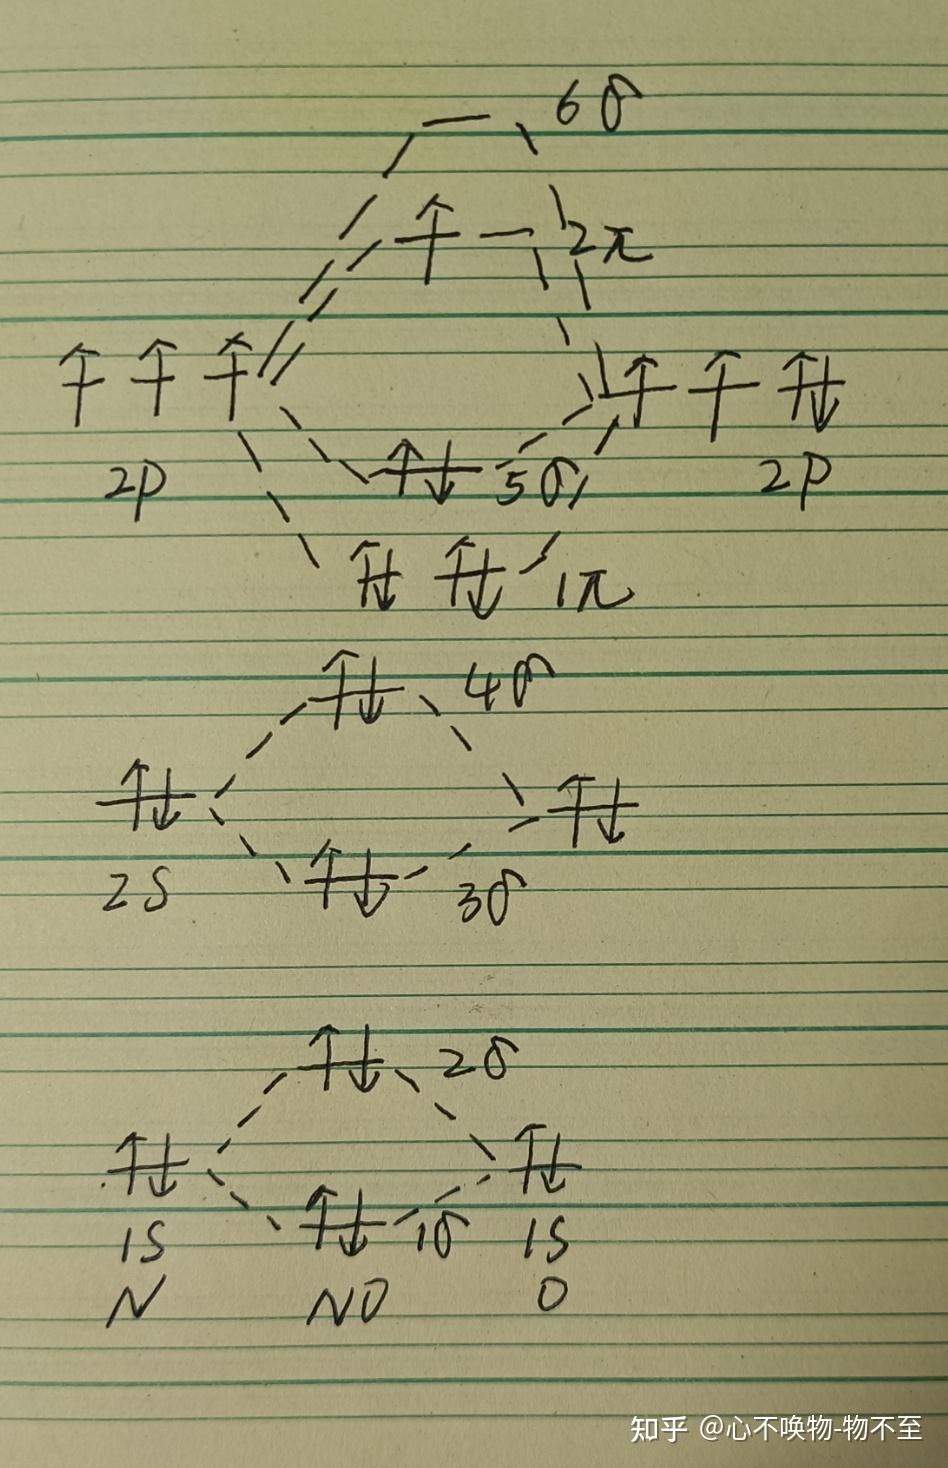 6σ
2π
2p 5σ 2p
1π
4σ
2s 3σ
2σ
1s 1σ 1s
N NO O
知乎 @心不唤物-物不至